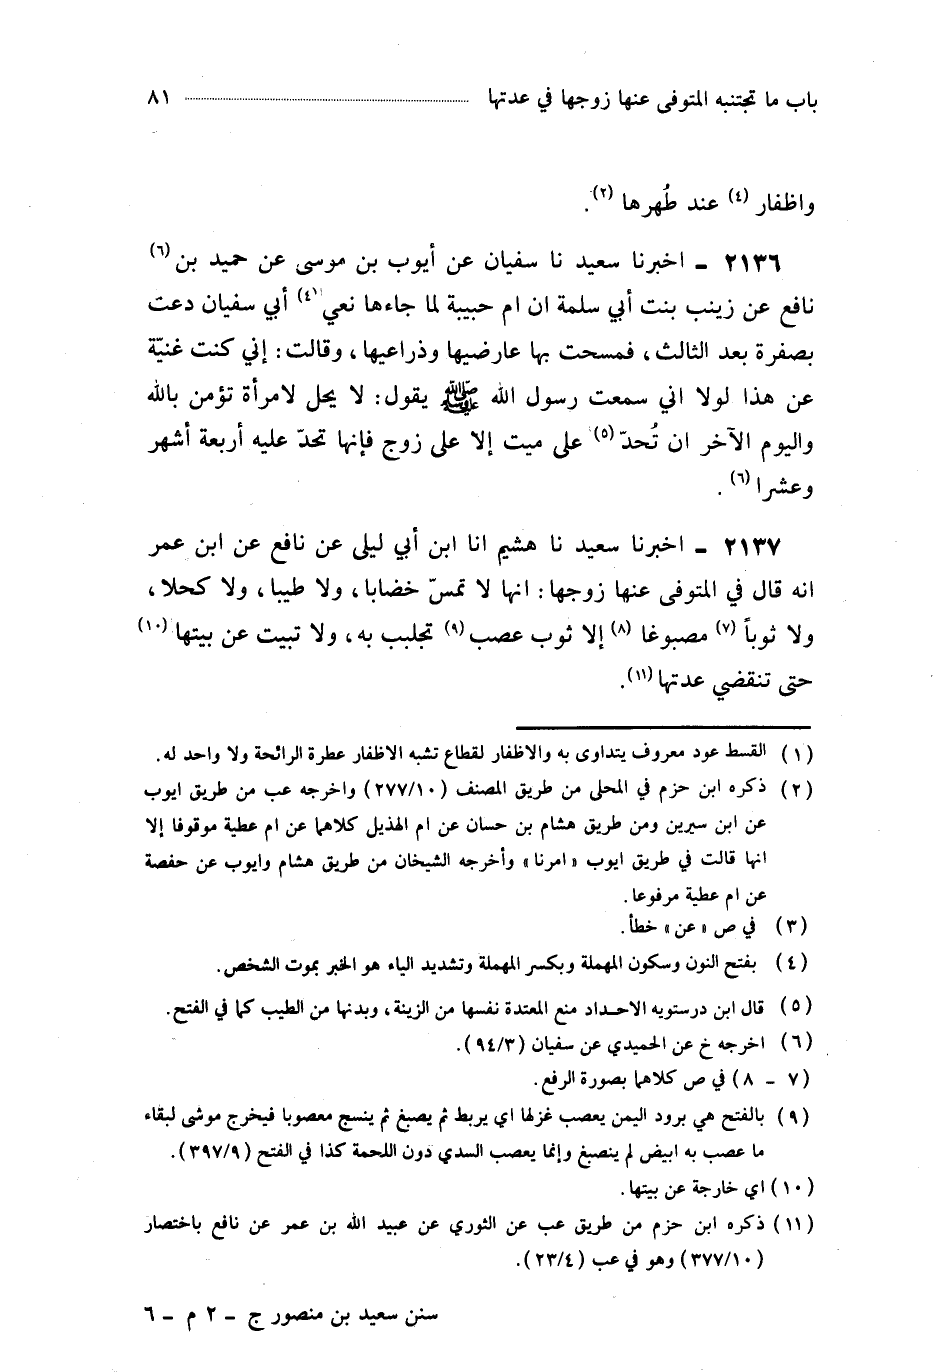 باب ما تجتنبه المتوفى عنها زوجها في عدتها ................ ٨١
واظفار (٤) عند طُهرها (٢).
٢١٣٦ ـ اخبرنا سعيد نا سفيان عن أيوب بن موسى عن حميد بن (٦)
نافع عن زينب بنت أبي سلمة ان ام حبيبة لما جاءها نعي (٤) أبي سفيان دعت
بصفرة بعد الثالث ، فمسحت بها عارضيها وذراعيها ، وقالت : إني كنت غنيّة
عن هذا لولا اني سمعت رسول الله ﷺ يقول : لا يحل لامرأة تؤمن بالله
واليوم الآخر ان تُحدّ (٥) على ميت إلا على زوج فإنها تحدّ عليه أربعة أشهر
وعشرا (٦) .
٢١٣٧ ـ اخبرنا سعيد نا هشيم انا ابن أبي ليلى عن نافع عن ابن عمر
انه قال في المتوفى عنها زوجها : انها لا تمسّ خضابا ، ولا طيبا ، ولا كحلا ،
ولا ثوباً (٧) مصبوغا (٨) إلا ثوب عصب (٩) تجلبب به ، ولا تبيت عن بيتها (١٠)
حتى تنقضي عدتها (١١).
(١) القسط عود معروف يتداوى به والاظفار لقطاع تشبه الاظفار عطرة الرائحة ولا واحد له .
(٢) ذكره ابن حزم في المحلى من طريق المصنف (٢٧٧/١٠) واخرجه عب من طريق ايوب
عن ابن سيرين ومن طريق هشام بن حسان عن ام الهذيل كلاهما عن ام عطية موقوفا إلا
انها قالت في طريق ايوب « امرنا » وأخرجه الشيخان من طريق هشام وايوب عن حفصة
عن ام عطية مرفوعا .
(٣) في ص « عن » خطأ .
(٤) بفتح النون وسكون المهملة وبكسر المهملة وتشديد الياء هو الخبر بموت الشخص .
(٥) قال ابن درستويه الاحداد منع المعتدة نفسها من الزينة ، وبدنها من الطيب كما في الفتح .
(٦) اخرجه خ عن الحميدي عن سفيان (٩٤/٣) .
(٧ ـ ٨) في ص كلاهما بصورة الرفع .
(٩) بالفتح هي برود اليمن يعصب غزلها اي يربط ثم يصبغ ثم ينسج معصوبا فيخرج موشى لبقاء
ما عصب به ابيض لم ينصبغ وإنما يعصب السدي دون اللحمة كذا في الفتح (٣٩٧/٩) .
(١٠) اي خارجة عن بيتها .
(١١) ذكره ابن حزم من طريق عب عن الثوري عن عبيد الله بن عمر عن نافع باختصار
(٣٧٧/١٠) وهو في عب (٢٣/٤) .
سنن سعيد بن منصور ج ـ ٢ م ـ ٦